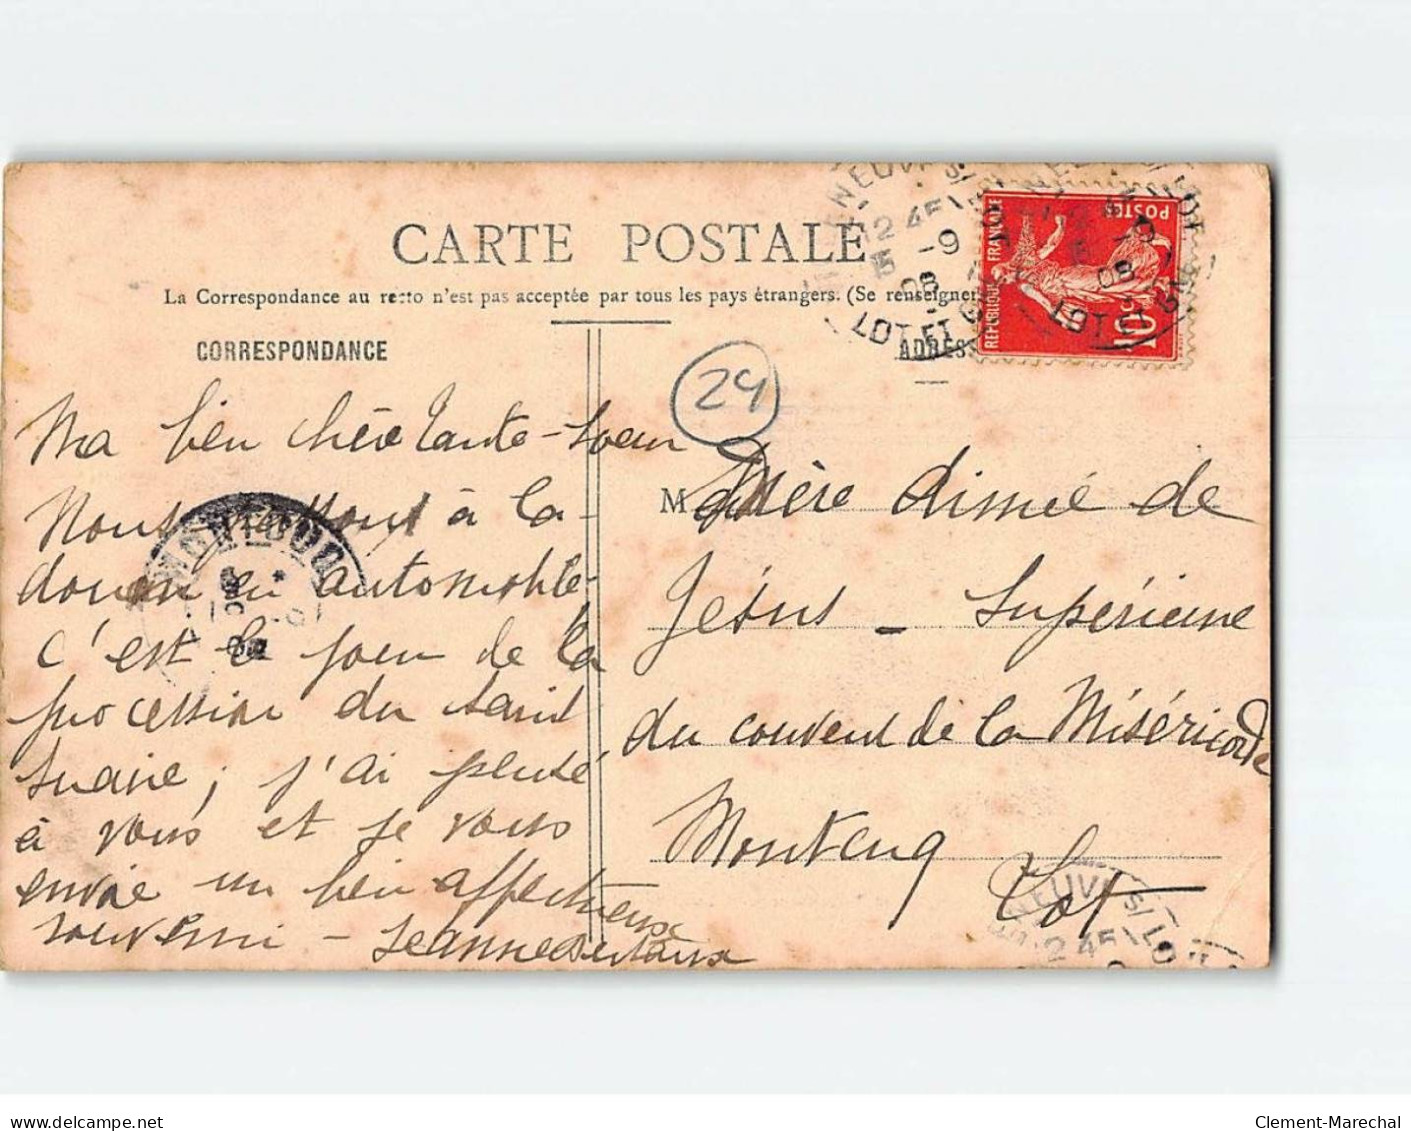 CARTE POSTALE
La Correspondance au recto n'est pas acceptée par tous les pays étrangers. (Se renseigner
CORRESPONDANCE
ADRESS
24
Ma bien chère tante-soeur
Nous à la
douan en automobile
C'est le jour de la
procession du Saint
Suaire; j'ai pensé
à vous et je vous
envoie un bien affectueux
souvenir - Jeanne
M Mère Aimée de
Jésus - Supérieure
du couvent de la Miséricorde
Montcuq
Lot
RÉPUBLIQUE FRANÇAISE
POSTES
10c
NEUVE S/ LOT
12 45
15 -9
08
LOT ET G
MONTCUQ
NEUVE S/ LOT
12 45
Clement-Marechal
www.delcampe.net